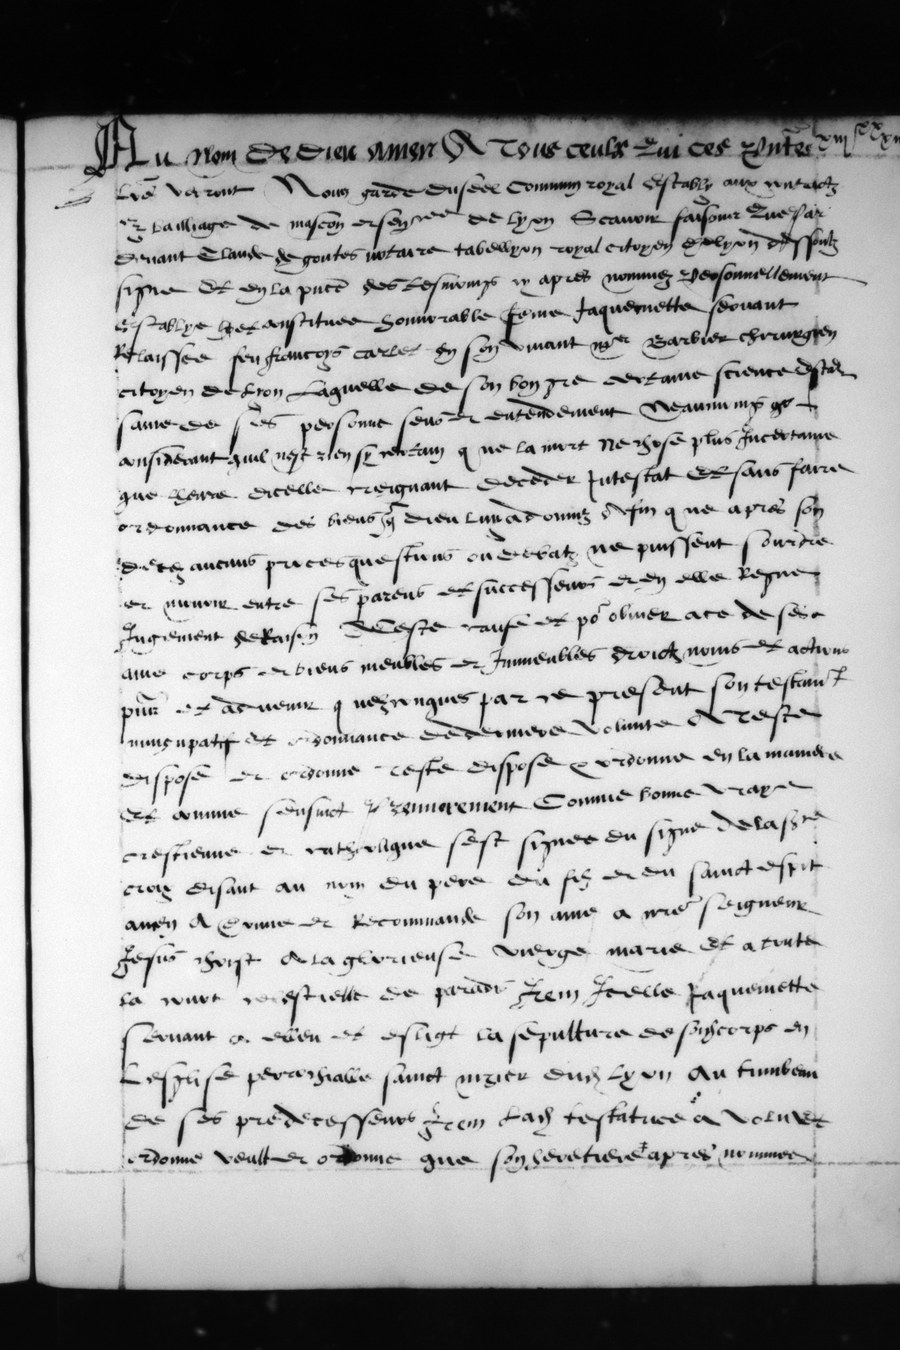 Au Nom de Dieu Amen A Tous ceulx Qui ces Pntes
Lres verront Nous garde du seel Commun royal estably aux contractz
es bailliage de mascon et sencee de Lyon Scavoir faisons Que par
devant Claude de goutes notaire tabellyon royal citoyen de lyon dessoubz
signe Et en la pnce des tesmoings cy apres nommez Personnellement
establye et constituee honnorable feme Jaquemette servant
Relaissee feu francoys carles en son vivant me Barbier chirurgien
citoyen de Lyon Laquelle de son bon gre certaine science estant
saine de ses personne sens et entendement Neaulmoings
considerant quil nest rien sy certain que la mort Ne chose plus Incertaine
que lheure dicelle creignant deceder Intestat Et sans faire
ordonnance des biens q Dieu luy a donnez Affin que apres son
deces aucuns proces questions ou debatz ne puissent sourdre
et mouvoir entre ses parens et successeurs et en elle Regne
Jugement de Raison A Ceste cause et por obvier a ce de ses
ame corps et biens meubles et Immeubles droictz noms et actions
pns et advenir quelzconques par ce present son testamt
nuncupatif et ordonnance de derniere volunte A Teste
dispose et ordonne teste dispose et ordonne en la maniere
et comme sensuict Et premierement Comme bonne vraye
crestienne et catholique sest signee du signe de la ste
croix disant au nom du pere du filz et du sainct esprit
amen A donne et Recommande son ame a nre seigneur
Jesus christ A la glorieuse vierge marie et a toute
la court celestielle de paradis Item Icelle Jaquemette
servant a esleu et esligt la sepulture de son corps en
Lesglise parrochialle sainct nizier dud Lyon Au tumbeau
de ses predecesseurs Item Lad testatrice a volu et
ordonne veult et ordonne que son heretiere apres nommee